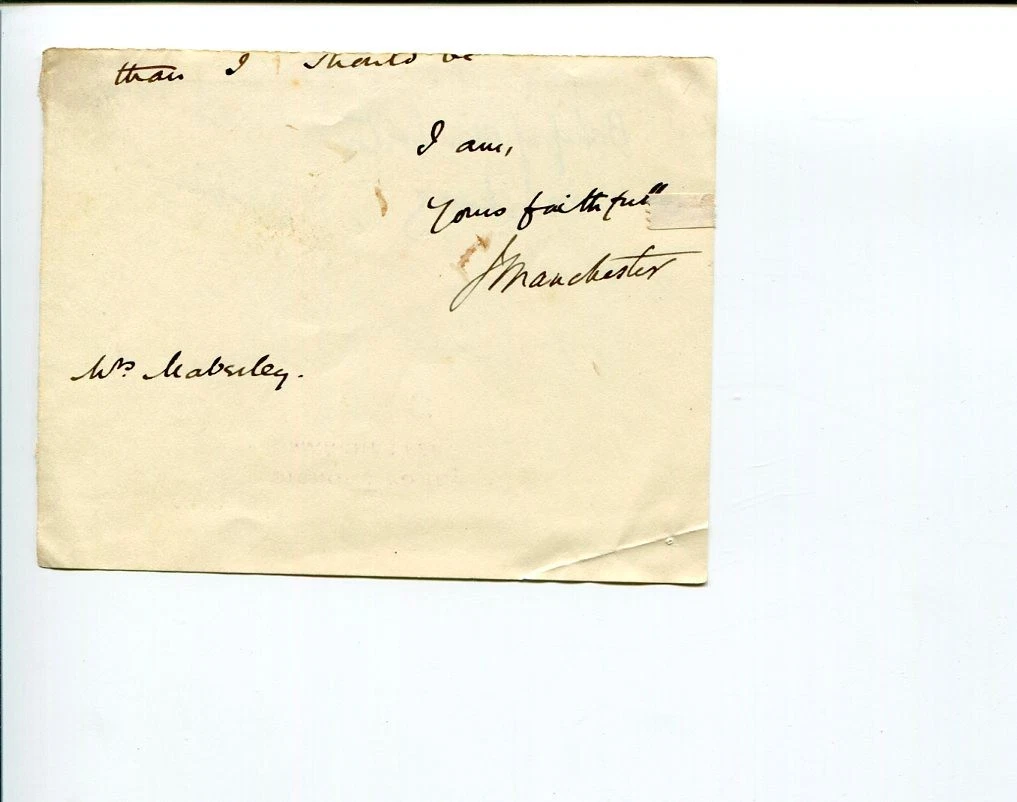 than I should be
I am,
Yours faithfully
J Manchester
Mrs Maberley.